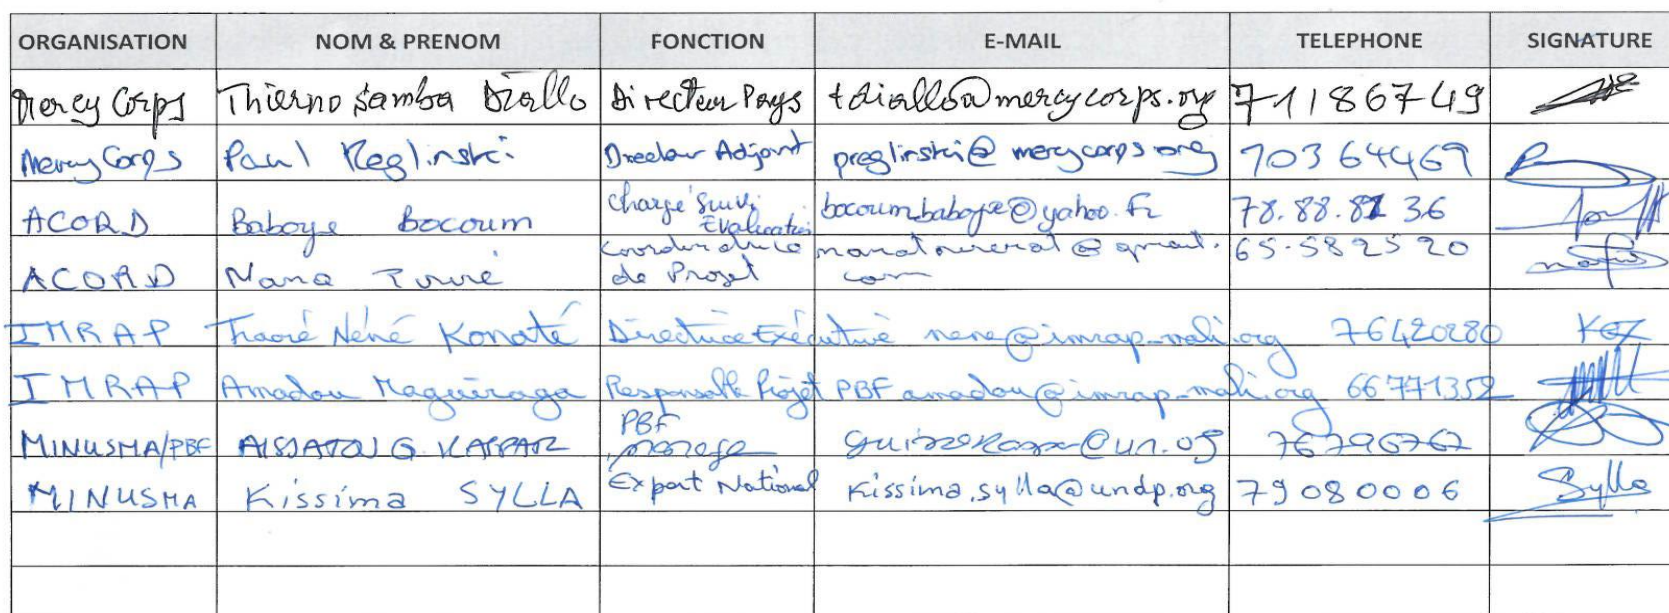 ORGANISATION NOM & PRENOM FONCTION E-MAIL TELEPHONE SIGNATURE
Mercy Corps Thierno Samba Diallo Directeur Pays tdiallo@mercycorps.org 71186749
Mercy Corps Paul Reglinski Directeur Adjoint preglinski@mercycorps.org 70364469
ACORD Baboye Bocoum Chargé Suivi Evaluation bocoumbaboye@yahoo.fr 78.88.82 36
ACORD Nana Touré Coordinatrice de Projet com 65-582520
IMRAP Traoré Néné Konaté Directrice Exécutive nene@imrap-mali.org 76420280
IMRAP Amadou Maguiraga Responsable Projet PBF amadou@imrap-mali.org 66771352
MINUSMA/PBF G. PBF 76796767
MINUSMA Kissima SYLLA Expert National Kissima.sylla@undp.org 79080006 Sylla